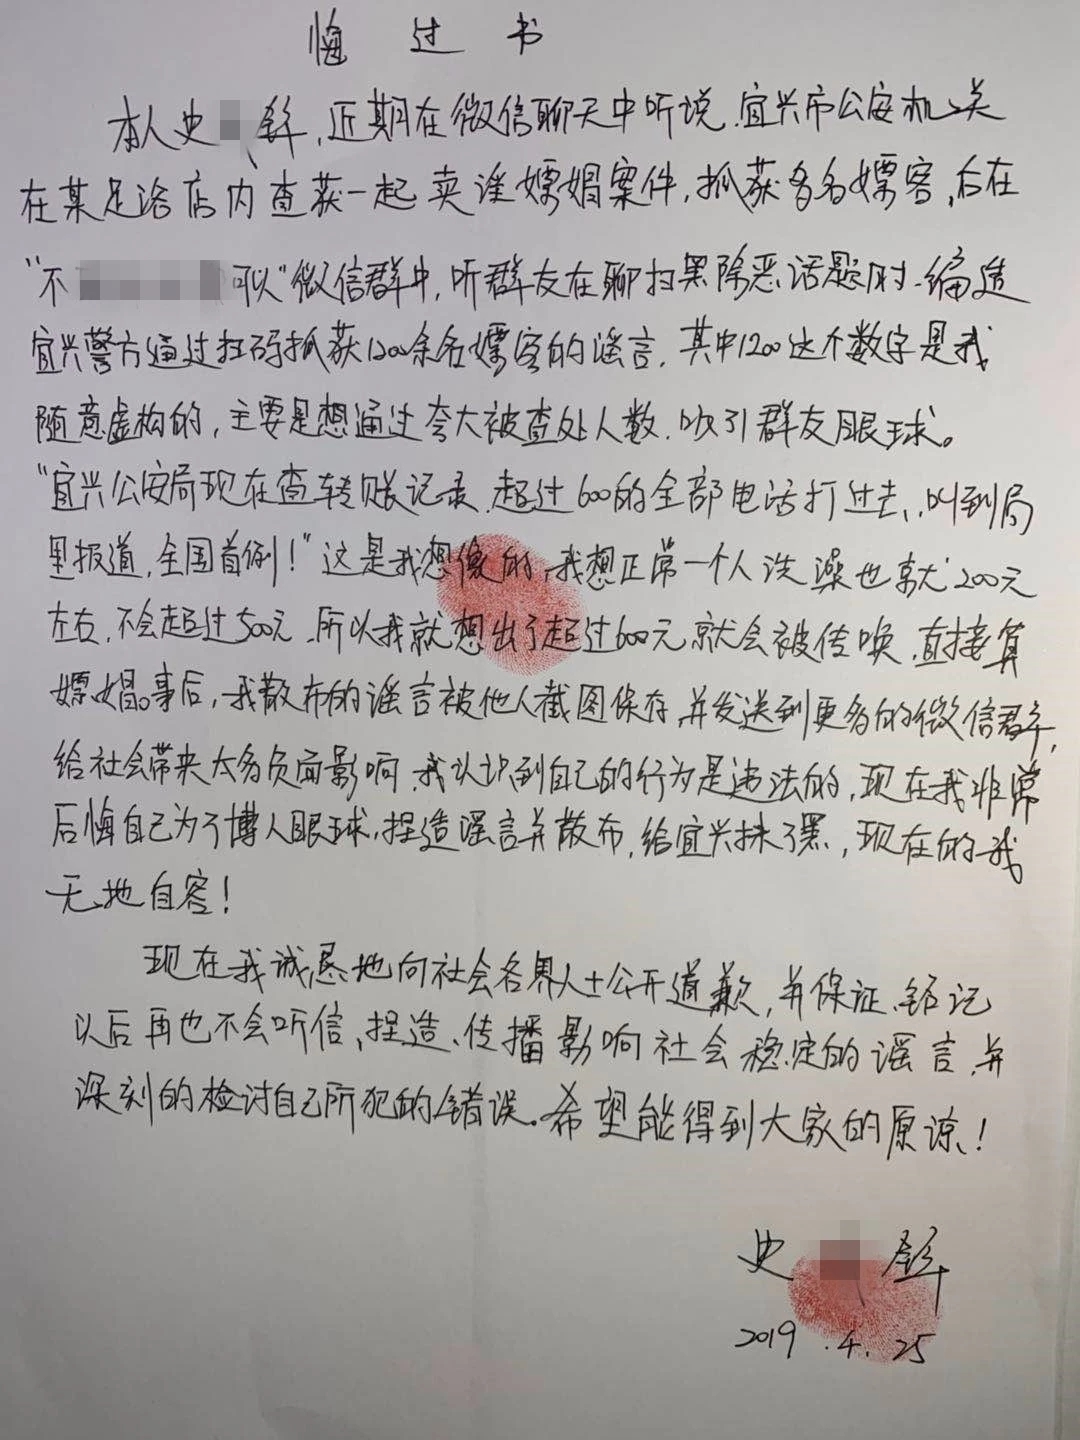 悔过书
本人史 锋，近期在微信聊天中听说，宜兴市公安机关
在某足浴店内查获一起卖淫嫖娼案件，抓获多名嫖客，后在
“不 可以”微信群中，听群友在聊扫黑除恶话题时，编造
宜兴警方通过扫码抓获1200余名嫖客的谣言，其中1200这个数字是我
随意虚构的，主要是想通过夸大被查处人数，吸引群友眼球。
“宜兴公安局现在查转账记录，超过600的全部电话打过去，叫到局
里报道，全国首例！”这是我想像的，我想正常一个人洗澡也就200元
左右，不会超过500元，所以我就想出了超过600元就会被传唤，直接算
嫖娼。事后，我散布的谣言被他人截图保存，并发送到更多的微信群，
给社会带来太多负面影响，我认识到自己的行为是违法的，现在我非常
后悔自己为了博人眼球，捏造谣言并散布，给宜兴抹了黑，现在的我
无地自容！
现在我诚恳地向社会各界人士公开道歉，并保证、铭记
以后再也不会听信、捏造、传播影响社会稳定的谣言，并
深刻的检讨自己所犯的错误。希望能得到大家的原谅！
史 锋
2019.4.25